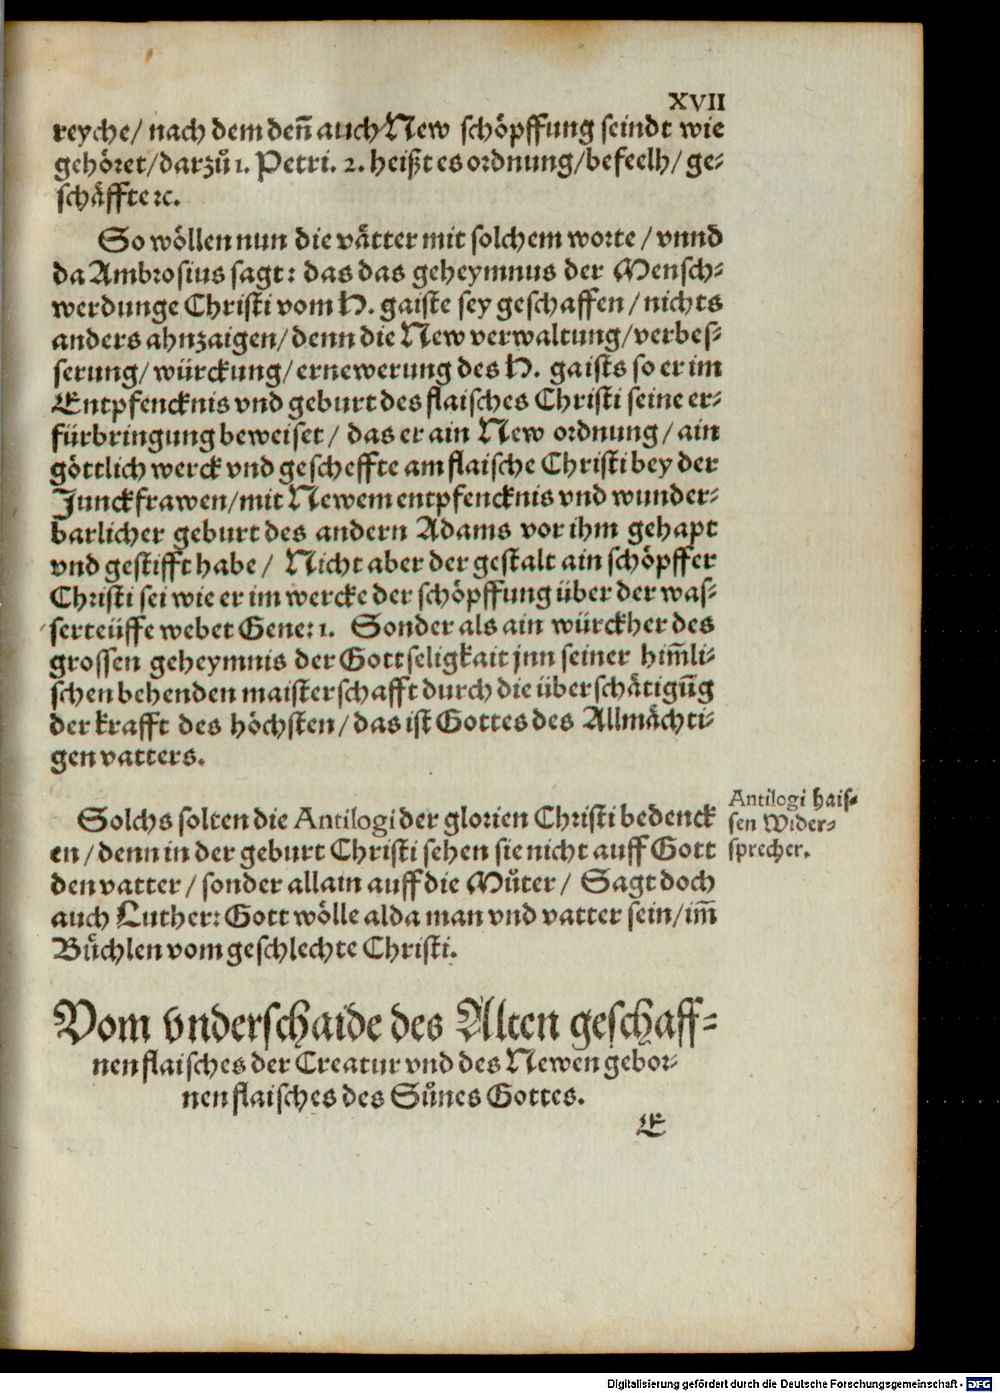 XVII
reyche/ nach dem deñ auch New schöpffung seindt wie
gehöret/darzů 1. Petri. 2. heißt es ordnung/befeelh/ ge⸗
schäffte ⁊c.
So wöllen nun die vätter mit solchem worte / vnnd
da Ambrosius sagt: das das geheymnus der Mensch⸗
werdunge Christi vom H. gaiste sey geschaffen / nichts
anders ahnzaigen/ denn die New verwaltung/verbes⸗
serung/ würckung/ ernewerung des H. gaists so er im
Entpfencknis vnd geburt des flaisches Christi seine er⸗
fürbringung beweiset / das er ain New ordnung / ain
göttlich werck vnd gescheffte am flaische Christi bey der
Junckfrawen/mit Newem entpfencknis vnd wunder⸗
barlicher geburt des andern Adams vor ihm gehapt
vnd gestifft habe / Nicht aber der gestalt ain schöpffer
Christi sei wie er im wercke der schöpffung über der was⸗
serteüffe webet Gene: 1. Sonder als ain würckher des
grossen geheymnis der Gottseligkait jnn seiner him̃li⸗
schen behenden maisterschafft durch die überschätigũg
der krafft des höchsten / das ist Gottes des Allmächti⸗
gen vatters.
Solchs solten die Antilogi der glorien Christi bedenck
en / denn in der geburt Christi sehen sie nicht auff Gott
den vatter / sonder allain auff die Můter / Sagt doch
auch Luther: Gott wölle alda man vnd vatter sein/im̃
Büchlen vom geschlechte Christi.
Antilogi hais⸗
sen Wider⸗
sprecher.
Vom vnderschaide des Alten geschaff⸗
nen flaisches der Creatur vnd des Newen gebor⸗
nen flaisches des Sůnes Gottes.
E
Digitalisierung gefördert durch die Deutsche Forschungsgemeinschaft - DFG